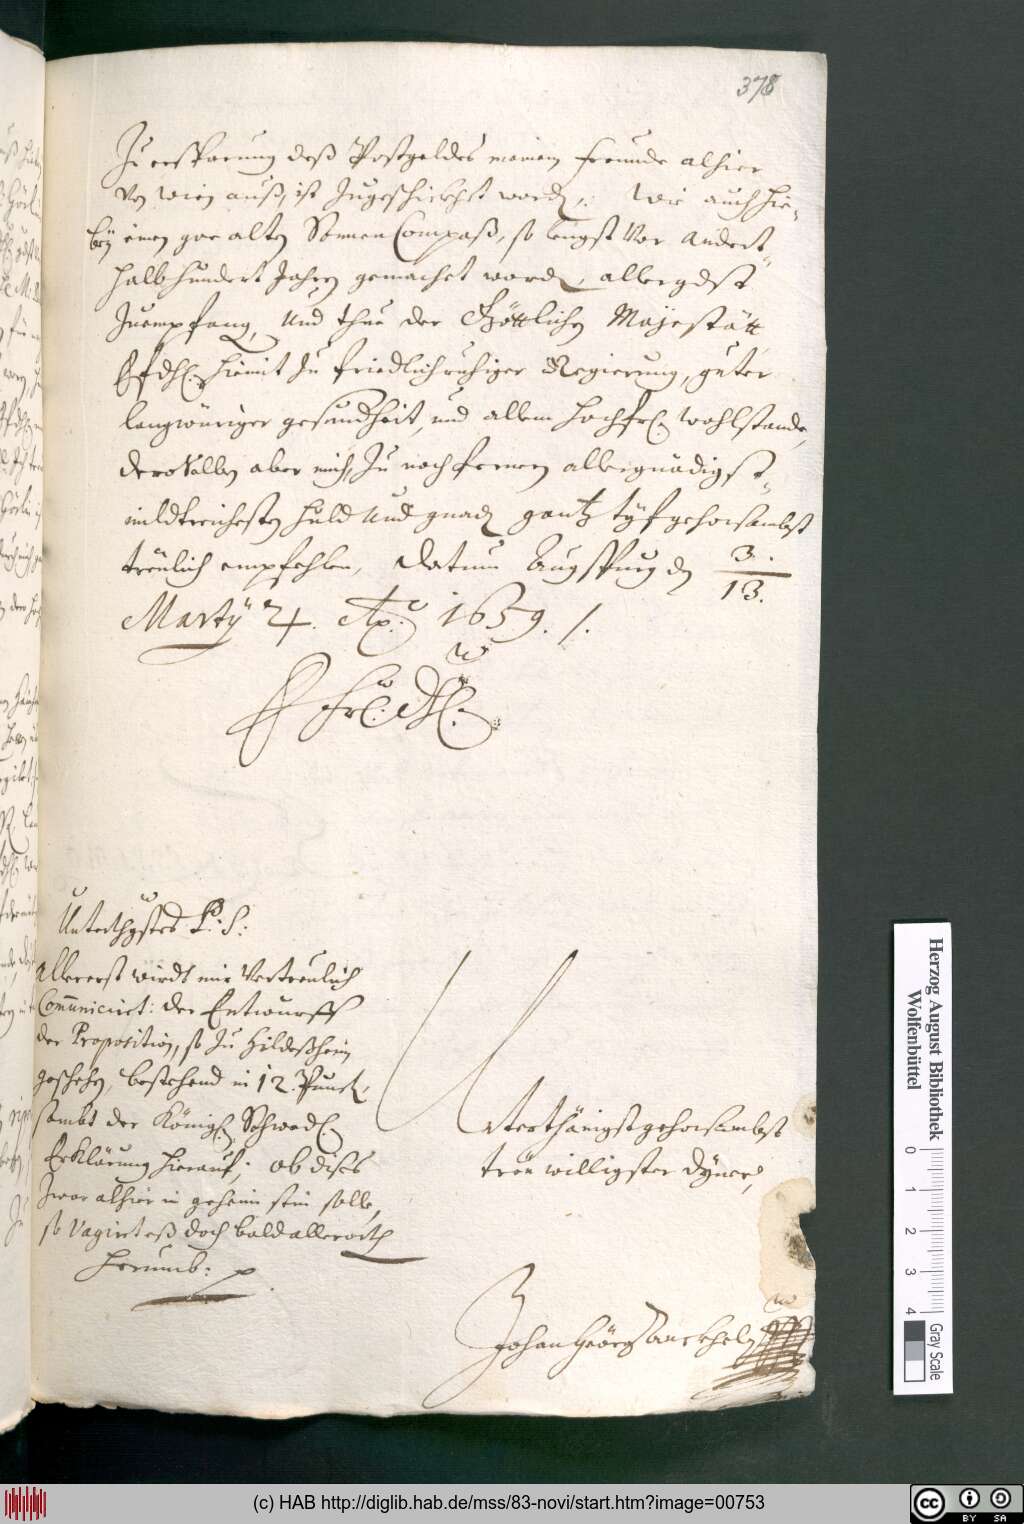 378
Zu ersparung deß Postgeldes meinem freunde alhier
von Wien auß, ist zugeschickhet word. Wie auch hie-
bey einen gar alten SonnenCompaß, so lengst vor Andert-
halbhundert Jahren gemachet word, allergdst
zuempfang, Und thue der Göttlichen Majestätt
E fdhl. hiemit zu friedlich ruhiger Regierung, guter
langwüriger gesundheit, und allem hochfrl. wohlstande,
deroselben aber mich, zu noch fernern allergnädigst-
mildtreichesten huld Und gnad gantz tyfgehorsambst
treulich empfehlen, Datum Augspurg d 3.
13.
Marty 4. Ao. 1659. /.
E Frl: Dhl.
Unterthgstes P: S:
Allererst wirdt mir Vertreulich
Communicirt: der Entwurff
der Proposition, so zu Hildeßheim
geschehen, bestehend in 12. Punct,
sambt der Königl. Schwed.
Erklärung hierauf; ob dises
zwar alhier in geheim sein solle,
so Vagirt eß doch bald allerorth
herumb:
Unterthänigst gehorsambst
treu willigster Dyner,
Johan Georg Anckhel
Herzog August Bibliothek
Wolfenbüttel
0 1 2 3 4
Gray Scale
(c) HAB http://diglib.hab.de/mss/83-novi/start.htm?image=00753
cc BY SA